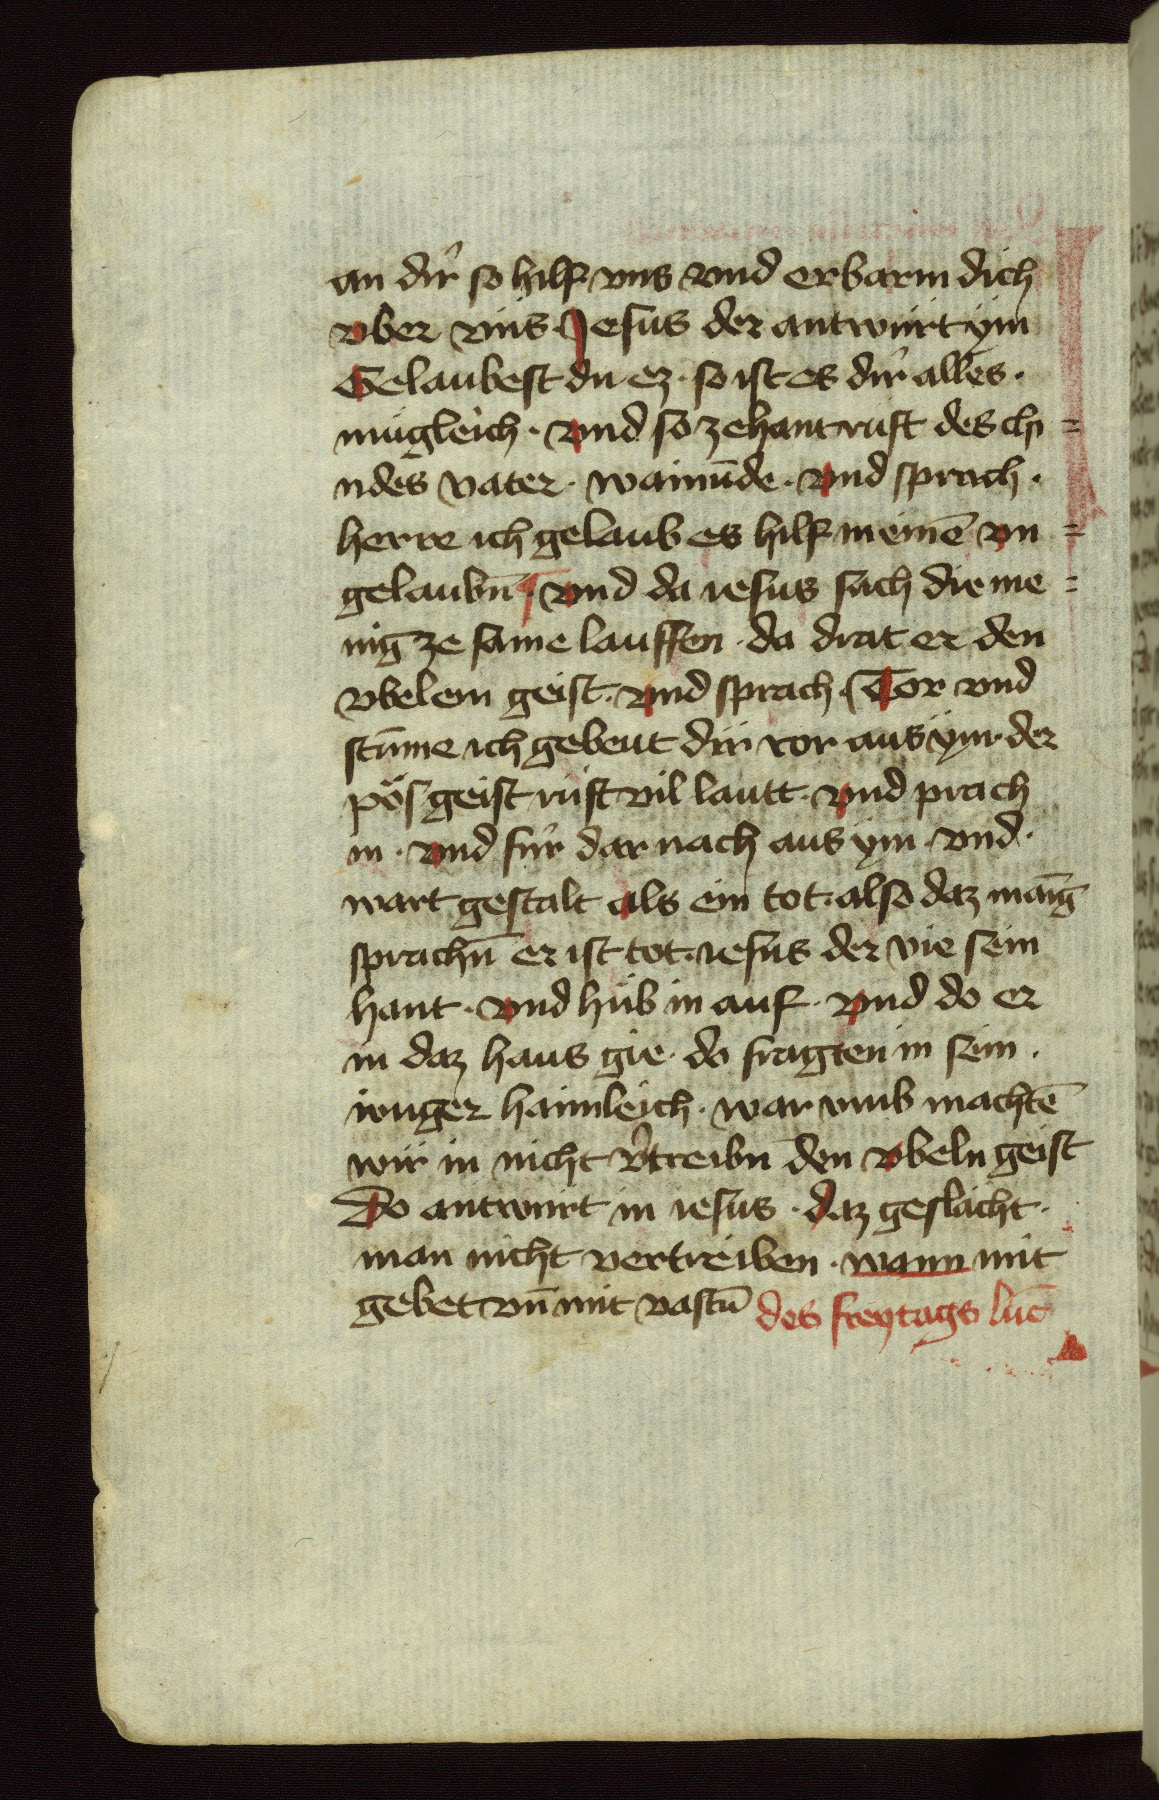 an dir so hilf vns vnd erbarm dich
vber vns. Jesus der antwurt ym
Gelaubest du ez. so ist es dir alles.
mugleich. vnd so zehant ruft des chi=
ndes vater. wainūde. vnd sprach.
herre ich gelaub es hilf meinē vn=
gelaubn̄ ¶ vnd da iesus sach die me=
nig ze same lauffen. da drat er den
vbelem geist. vnd sprach. Tor vnd
stūme ich gebeut dir var aus ym. der
pös geist ruft vil lautt. vnd prach
in. vnd fur dar nach aus ym. vnd.
wart gestalt als ein tot. also daz manig
sprachn̄ er ist tot. iesus der vie sein
hant. vnd hub in auf. vnd do er
in daz haus gie. do fragten in sein.
iunger haimleich. war vmb machtē
wir in nicht v̓treibn̄ den vbeln geist
Do antwurt in iesus. daz geslächt.
man nicht vertreiben. wann mit
gebet vn̄ mit vastn̄ des freytags luc̄